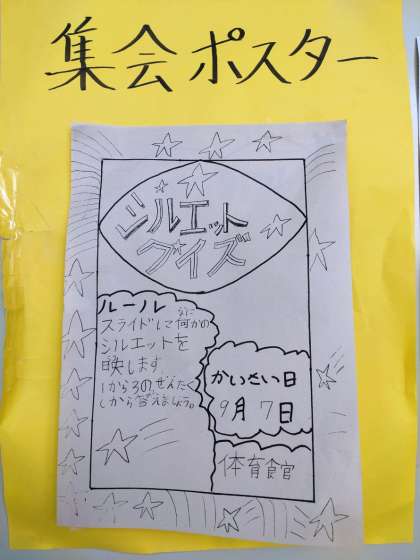 集会ポスター
シルエット
クイズ
ルール
スライドして何かの
なに
シルエットを
映します
1から3のぜんたく
しから答えましょう。
かいさい日
9月7日
体育食官